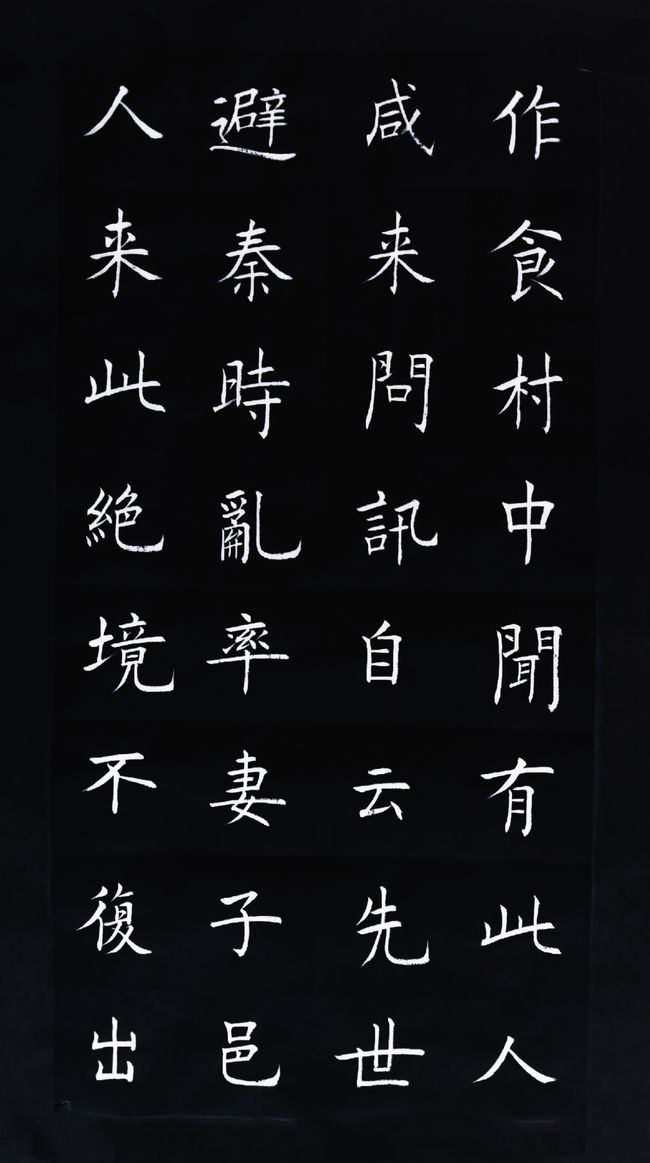 作食村中聞有此人
咸来問訊自云先世
避秦時亂率妻子邑
人来此絶境不復出